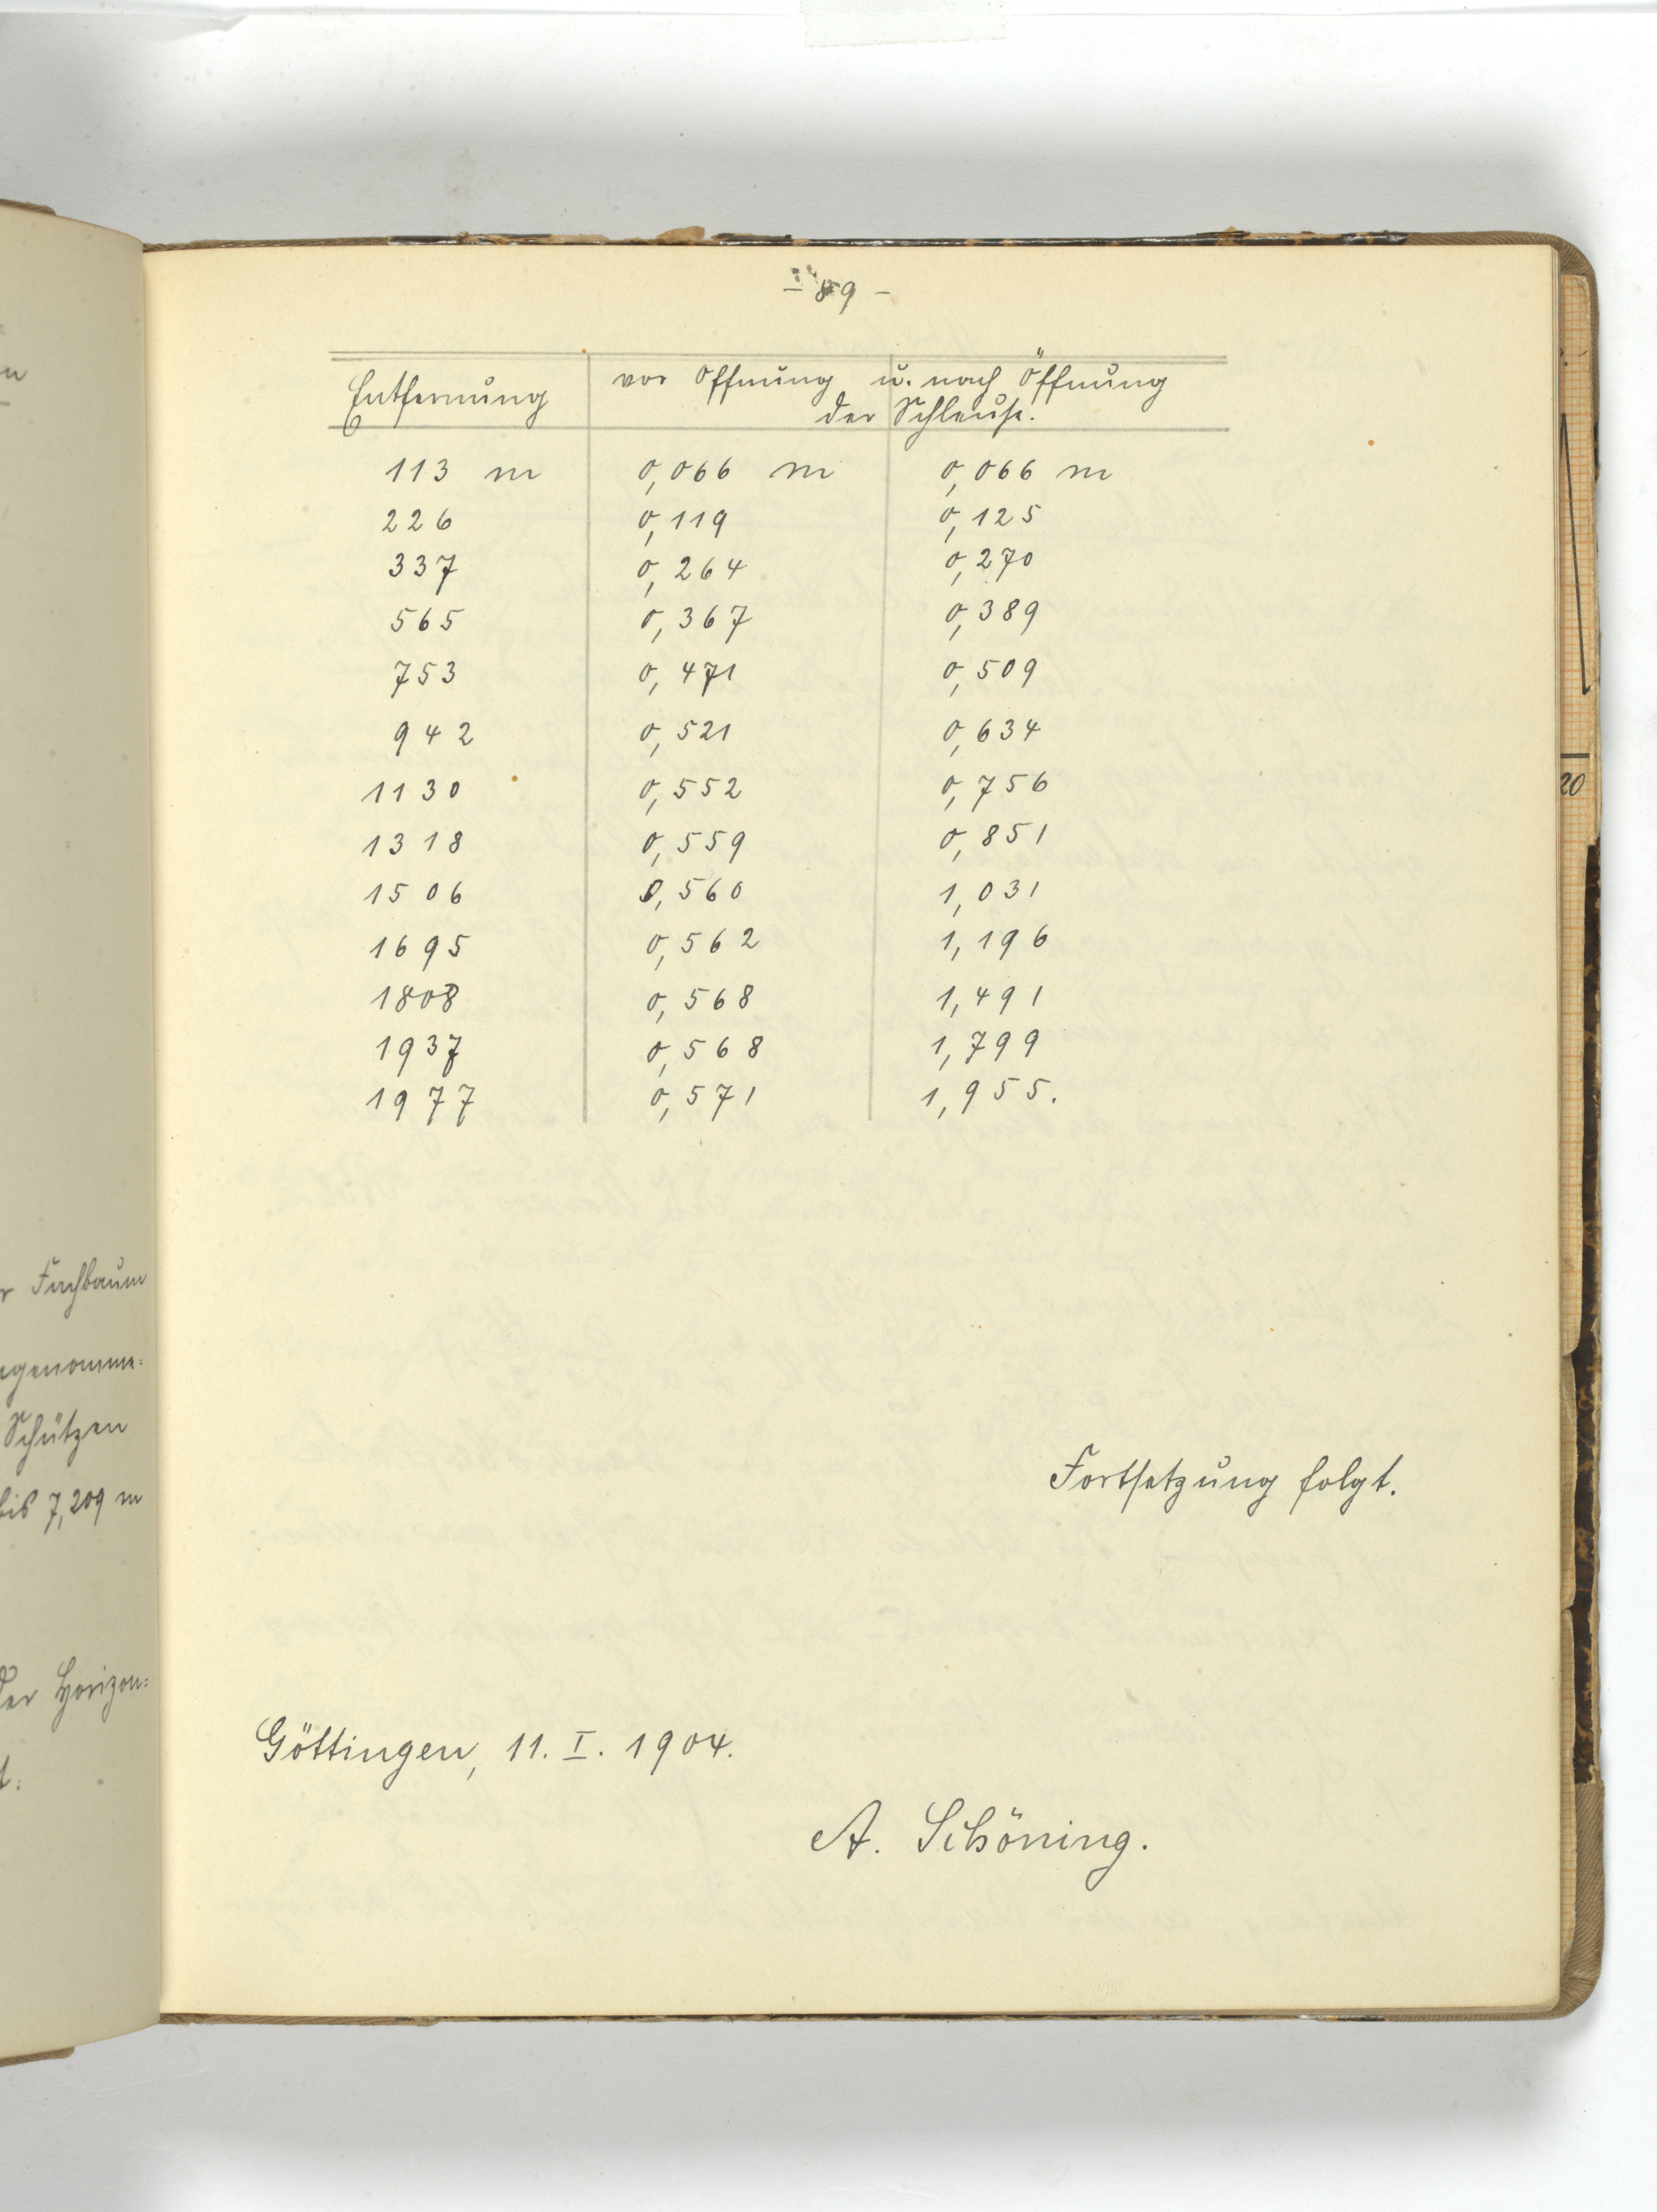 - 89 -
Entfernung vor Öffnung u. nach Öffnung
der Schleuse.
113 m 0,066 m 0,066 m
226 0,119 0,125
337 0,264 0,270
565 0,367 0,389
753 0,471 0,509
942 0,521 0,634
1130 0,552 0,756
1318 0,559 0,851
1506 0,560 1,031
1695 0,562 1,196
1808 0,568 1,491
1937 0,568 1,799
1977 0,571 1,955.
Fortsetzung folgt.
Göttingen, 11. I. 1904.
A. Schöning.
r Fachbaum
genomme:
Schützen
bis 7,209 m
der Horizon:
20